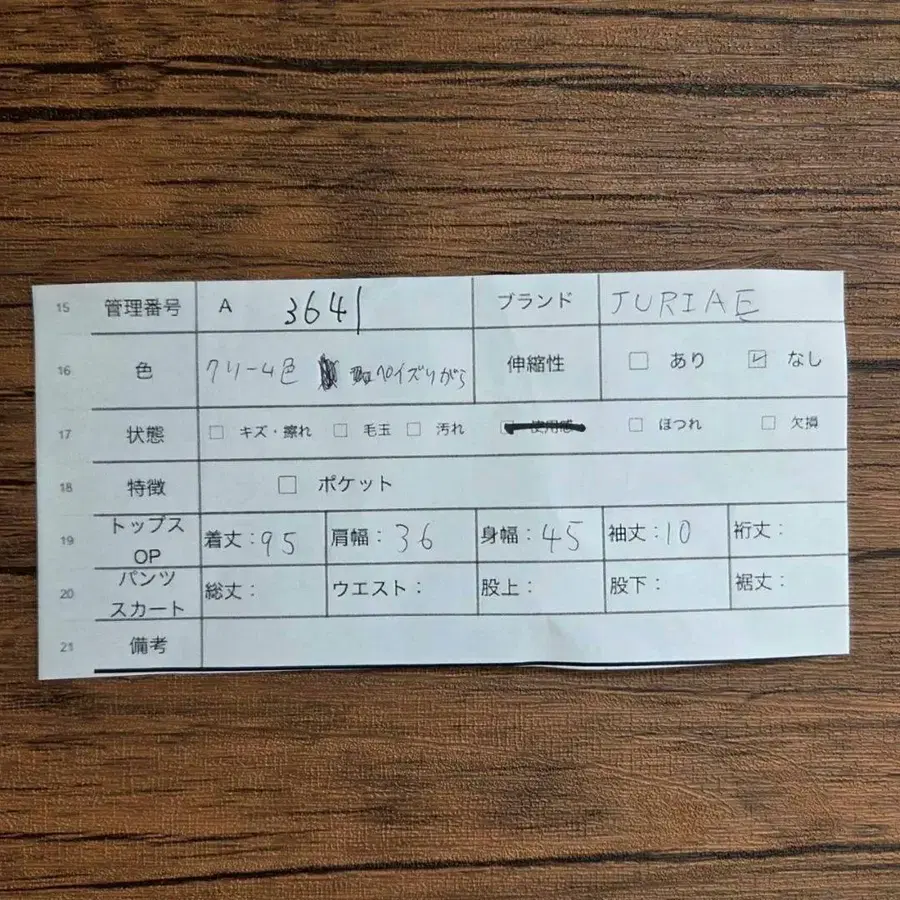 15 管理番号 A 3641 ブランド JURIAE
16 色 クリーム色 ペイズリがら 伸縮性 □ あり ☑ なし
17 状態 □ キズ・擦れ □ 毛玉 □ 汚れ □ 使用感 □ ほつれ □ 欠損
18 特徴 □ ポケット
19 トップス OP 着丈:95 肩幅:36 身幅:45 袖丈:10 裄丈:
20 パンツ スカート 総丈: ウエスト: 股上: 股下: 裾丈:
21 備考